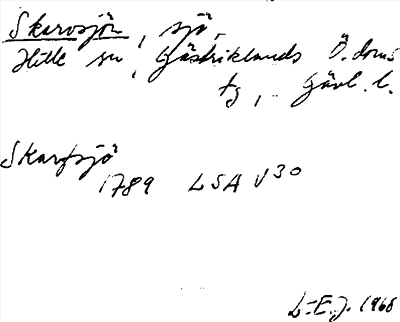 Skarvsjön, sjö,
Hille sn, Gästriklands Ö. doms
tg, Gävl. l.
Skarfsjö
1789 LSA V 30
L-E. J. 1968